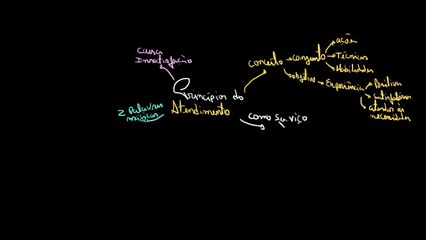 Causa
Insatisfação
Conceito → conjunto
ações
Técnicas
Habilidades
objetivo → Experiência
Positiva
satisfatória
atender às
necessidades
Princípios do
Atendimento
2 Palavras
mágicas
como serviço